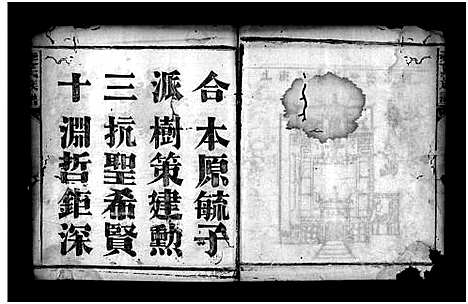 合本原毓子
派樹策建勲
三抗聖希賢
十淵哲鉅深